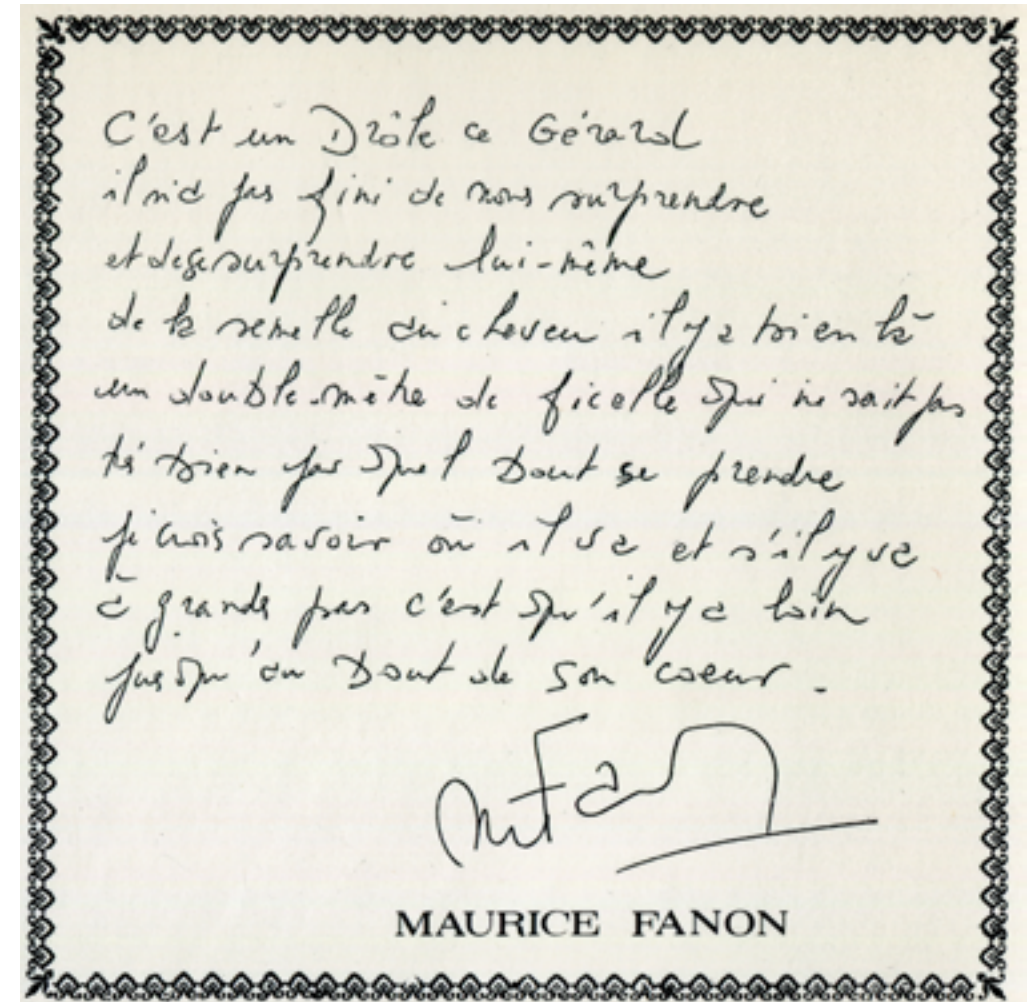 C'est un Drôle ce Gérard
il n'a pas fini de nous surprendre
et de se surprendre lui-même
de la semelle au cheveu il y a bien là
un double-mètre de ficelle qui ne sait pas
très bien par quel bout se prendre
je crois savoir où il va et s'il y va
à grands pas c'est qu'il y a loin
jusqu'au bout de son coeur.
M Fanon
MAURICE FANON